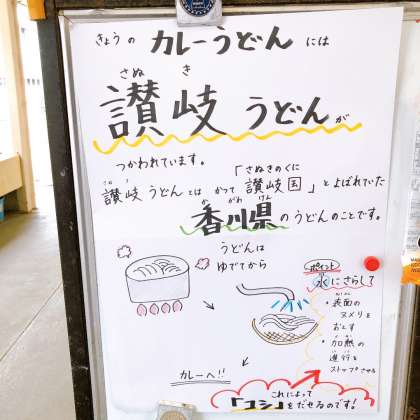 きょうの カレーうどん には
さぬき
讃岐うどんが
つかわれています。
「さぬきのくに
さぬき
讃岐うどんとは かつて「讃岐国」とよばれていた
かがわけん
香川県のうどんのことです。
うどんは
ゆでてから
ポイント
水にさらして
・表面の
ヌメリを
おとす
・加熱の
進行を
ストップさせる
カレーへ!!
これによって
「コシ」をだせるのです!